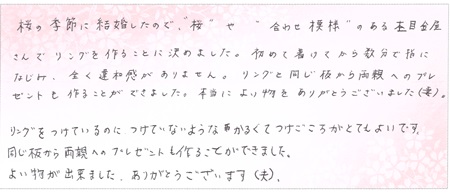 桜の季節に結婚したので、"桜" や "合わせ模様" のある杢目金屋
さんでリングを作ることに決めました。初めて着けてから数分で指に
なじみ、全く違和感がありません。リングと同じ板から両親へのプレ
ゼントも作ることができました。本当によい物をありがとうございました(妻)。
リングをつけているのにつけていないようなかるくてつけごこちがとてもよいです。
同じ板から両親へのプレゼントも作ることができました。
よい物が出来ました。ありがとうございます(夫)。